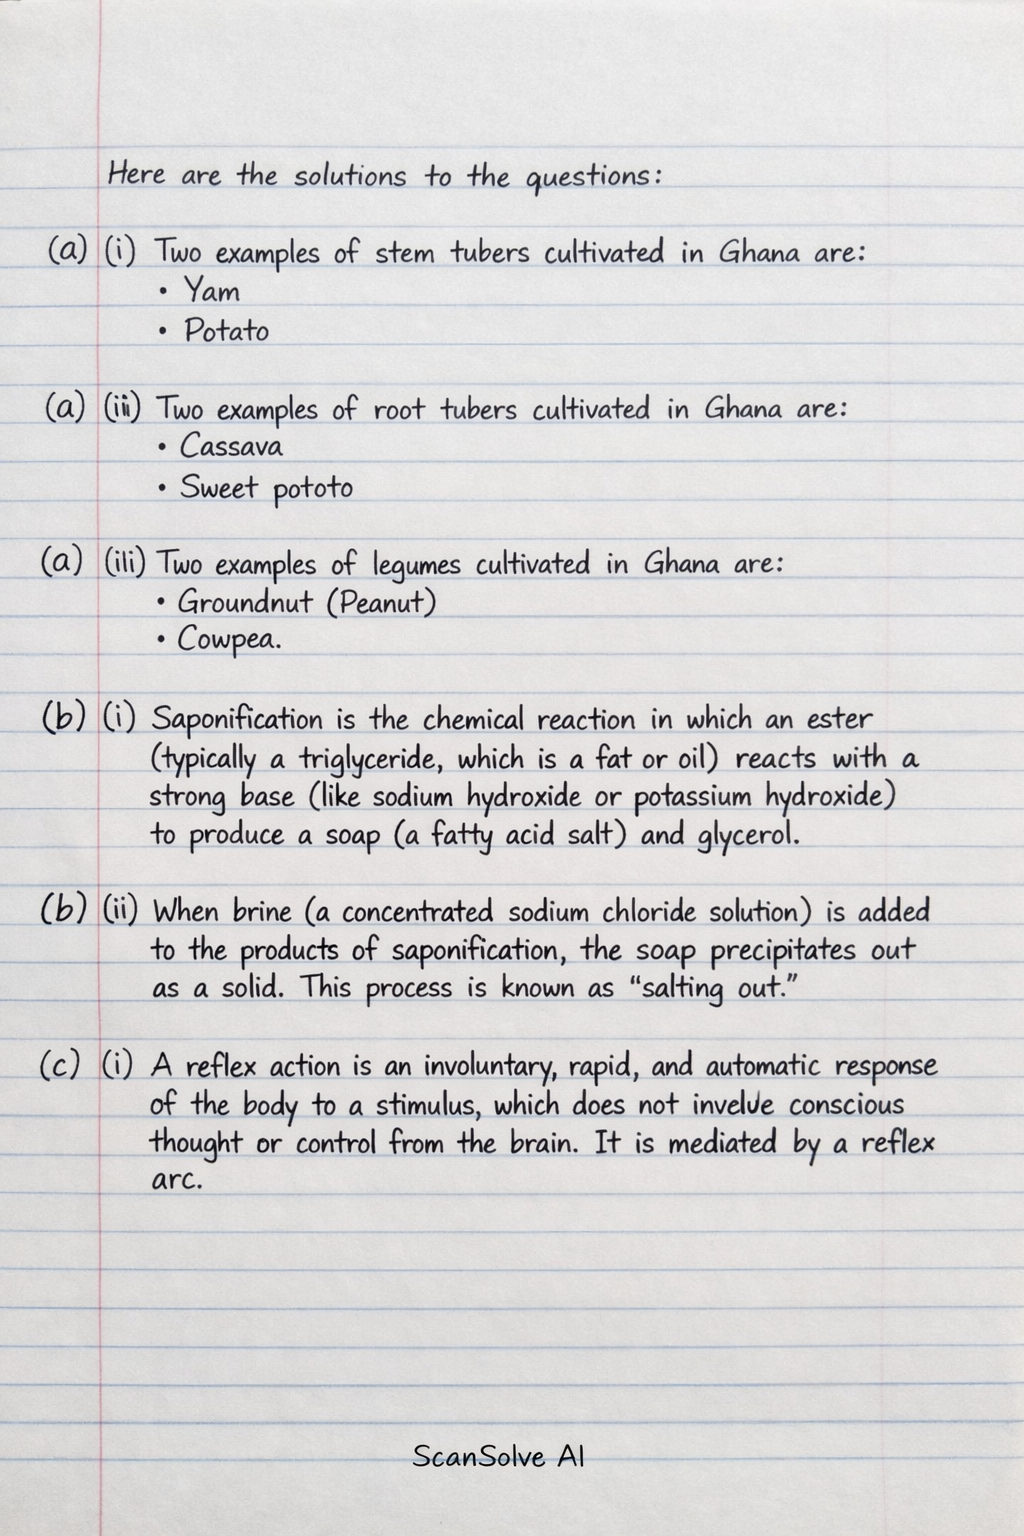 Here are the solutions to the questions:
(a) (i) Two examples of stem tubers cultivated in Ghana are:
• Yam
• Potato
(a) (ii) Two examples of root tubers cultivated in Ghana are:
• Cassava
• Sweet pototo
(a) (ili) Two examples of legumes cultivated in Ghana are:
• Groundnut (Peanut)
• Cowpea.
(b) (i) Saponification is the chemical reaction in which an ester
(typically a triglyceride, which is a fat or oil) reacts with a
strong base (like sodium hydroxide or potassium hydroxide)
to produce a soap (a fatty acid salt) and glycerol.
(b) (ii) When brine (a concentrated sodium chloride solution) is added
to the products of saponification, the soap precipitates out
as a solid. This process is known as “salting out.”
(c) (i) A reflex action is an involuntary, rapid, and automatic response
of the body to a stimulus, which does not invelve conscious
thought or control from the brain. It is mediated by a reflex
arc.
ScanSolve AI